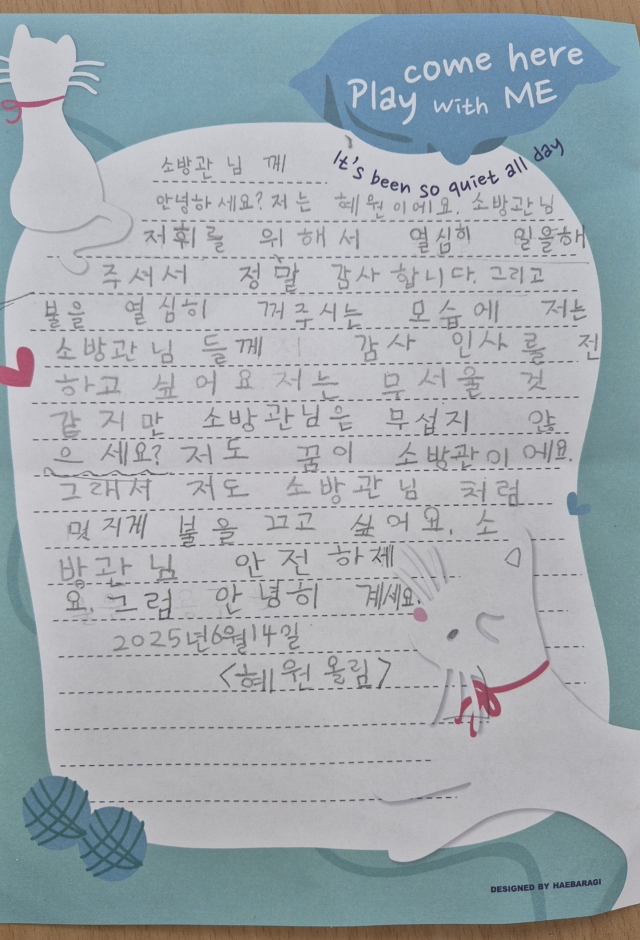 come here
Play with ME
It's been so quiet all day
소방관 님 께
안녕하세요? 저는 혜원이에요. 소방관님
저휘를 위해서 열심히 일을해
주셔서 정말 감사 합니다. 그리고
불을 열심히 꺼주시는 모습에 저는
소방관님 들께 감사 인사를 전
하고 싶어요 저는 무서울 것
같지만 소방관님은 무섭지 않
으세요? 저도 꿈이 소방관이에요.
그래서 저도 소방관님 처럼
멌지게 불을 끄고 싶어요. 소
방관님 안전하제
요. 그럼 안녕히 계세요.
2025년6월14일
<혜원 올림>
DESIGNED BY HAEBARAGI